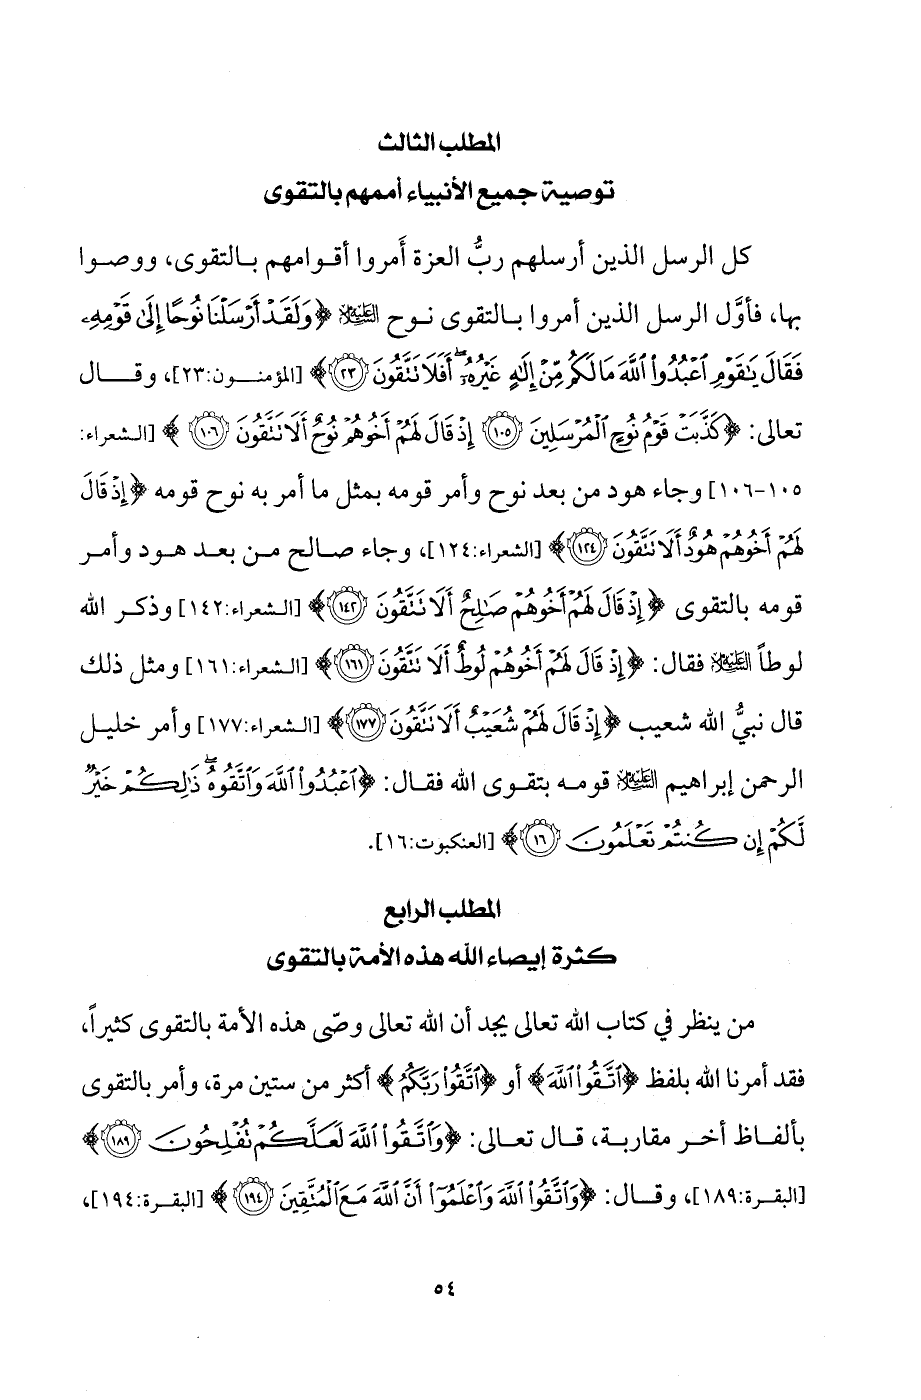 المطلب الثالث
توصية جميع الأنبياء أممهم بالتقوى
كل الرسل الذين أرسلهم ربُّ العزة أَمروا أقوامهم بالتقوى، ووصوا
بها، فأوَّل الرسل الذين أمروا بالتقوى نوح عليه السلام ﴿وَلَقَدْ أَرْسَلْنَا نُوحًا إِلَىٰ قَوْمِهِۦ
فَقَالَ يَٰقَوْمِ ٱعْبُدُوا۟ ٱللَّهَ مَا لَكُم مِّنْ إِلَٰهٍ غَيْرُهُۥٓ ۖ أَفَلَا تَتَّقُونَ ٢٣﴾ [المؤمنون:٢٣]، وقال
تعالى: ﴿كَذَّبَتْ قَوْمُ نُوحٍ ٱلْمُرْسَلِينَ ١٠٥ إِذْ قَالَ لَهُمْ أَخُوهُمْ نُوحٌ أَلَا تَتَّقُونَ ١٠٦﴾ [الشعراء:
١٠٥-١٠٦] وجاء هود من بعد نوح وأمر قومه بمثل ما أمر به نوح قومه ﴿إِذْ قَالَ
لَهُمْ أَخُوهُمْ هُودٌ أَلَا تَتَّقُونَ ١٢٤﴾ [الشعراء:١٢٤]، وجاء صالح من بعد هود وأمر
قومه بالتقوى ﴿إِذْ قَالَ لَهُمْ أَخُوهُمْ صَٰلِحٌ أَلَا تَتَّقُونَ ١٤٢﴾ [الشعراء:١٤٢] وذكر الله
لوطاً عليه السلام فقال: ﴿إِذْ قَالَ لَهُمْ أَخُوهُمْ لُوطٌ أَلَا تَتَّقُونَ ١٦١﴾ [الشعراء:١٦١] ومثل ذلك
قال نبيُّ الله شعيب ﴿إِذْ قَالَ لَهُمْ شُعَيْبٌ أَلَا تَتَّقُونَ ١٧٧﴾ [الشعراء:١٧٧] وأمر خليل
الرحمن إبراهيم عليه السلام قومه بتقوى الله فقال: ﴿ٱعْبُدُوا۟ ٱللَّهَ وَٱتَّقُوهُ ۖ ذَٰلِكُمْ خَيْرٌ
لَّكُمْ إِن كُنتُمْ تَعْلَمُونَ ١٦﴾ [العنكبوت:١٦].
المطلب الرابع
كثرة إيصاء الله هذه الأمة بالتقوى
من ينظر في كتاب الله تعالى يجد أن الله تعالى وصّى هذه الأمة بالتقوى كثيراً،
فقد أمرنا الله بلفظ ﴿ٱتَّقُوا۟ ٱللَّهَ﴾ أو ﴿ٱتَّقُوا۟ رَبَّكُمُ﴾ أكثر من ستين مرة، وأمر بالتقوى
بألفاظ أخر مقاربة، قال تعالى: ﴿وَٱتَّقُوا۟ ٱللَّهَ لَعَلَّكُمْ تُفْلِحُونَ ١٨٩﴾
[البقرة:١٨٩]، وقال: ﴿وَٱتَّقُوا۟ ٱللَّهَ وَٱعْلَمُوٓا۟ أَنَّ ٱللَّهَ مَعَ ٱلْمُتَّقِينَ ١٩٤﴾ [البقرة:١٩٤]،
٥٤